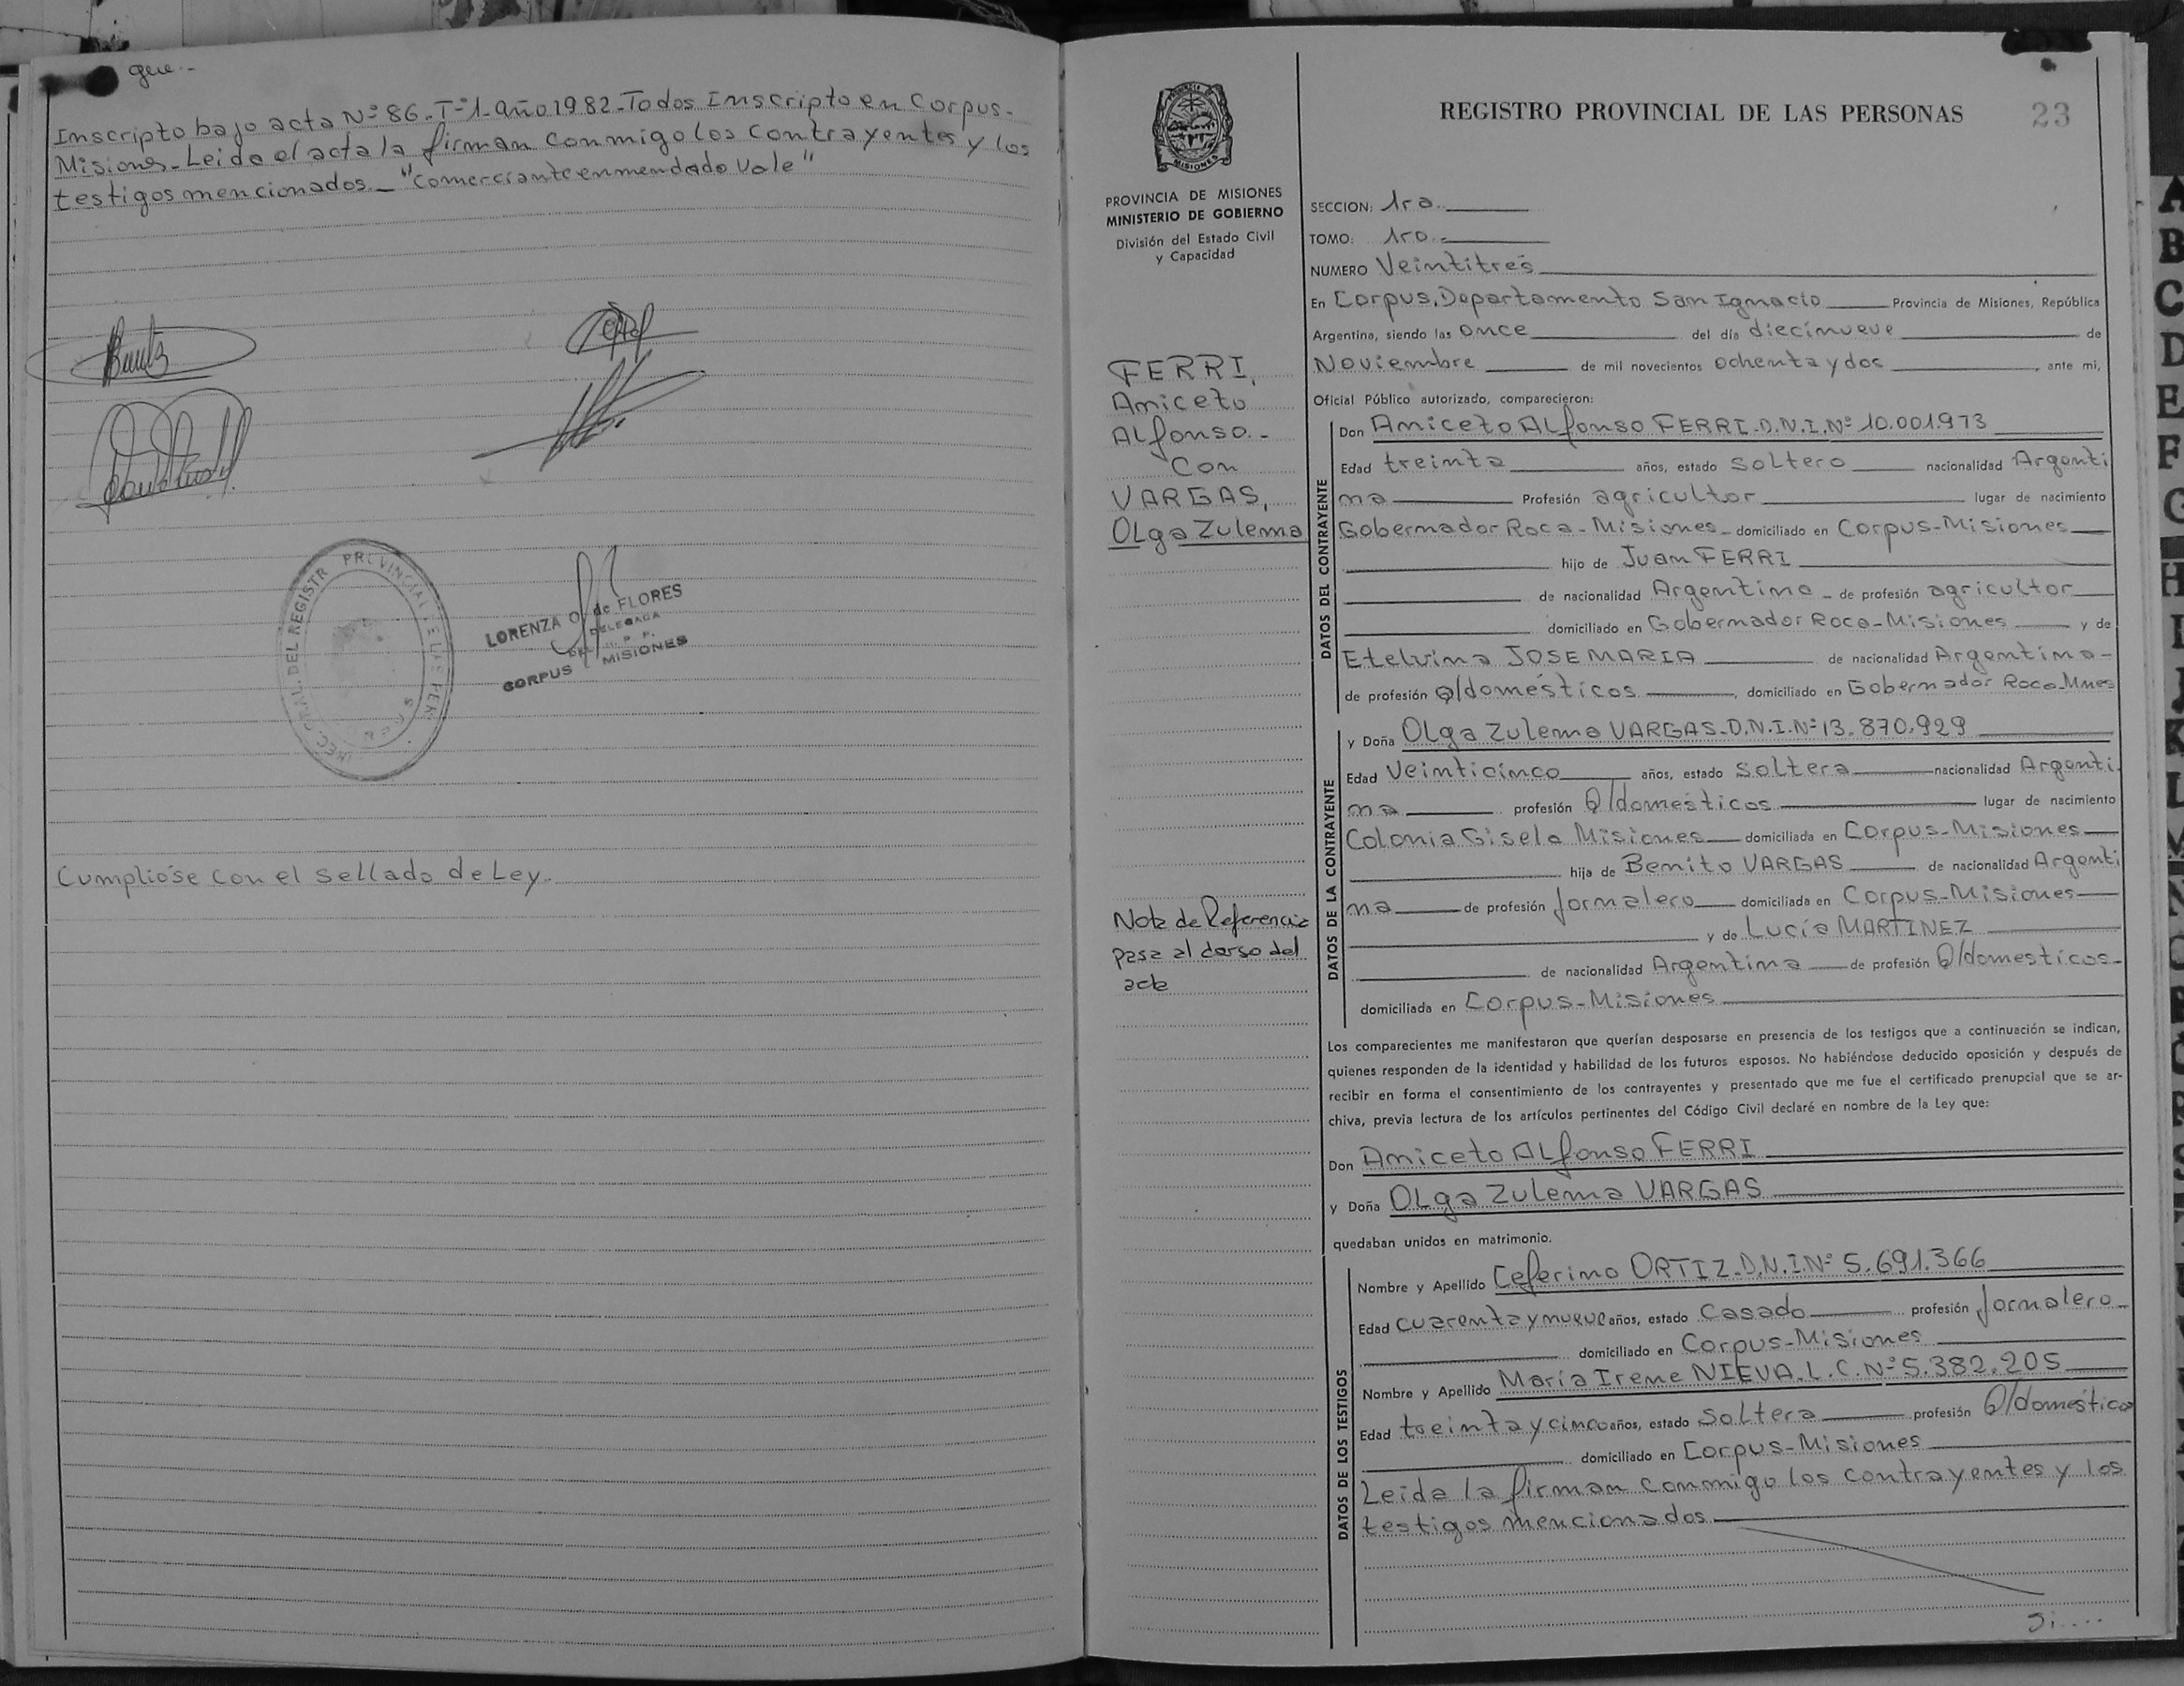 gue.-
Inscripto bajo acta Nº 86-Tº1-año 1982-Todos Inscripto en Corpus-
Misiones-Leida el acta la firman conmigo los contrayentes y los
testigos mencionados_"Comerciante enmendado Vale"
LORENZA O. de FLORES
DELEGADA
CORPUS MISIONES
Cumplióse con el sellado de Ley.
MISIONES
PROVINCIA DE MISIONES
MINISTERIO DE GOBIERNO
División del Estado Civil
y Capacidad
FERRI,
Aniceto
ALfonso.-
Con
VARGAS,
OLga Zulema
Nota de Referencia
pasa al dorso del
acta
REGISTRO PROVINCIAL DE LAS PERSONAS 23
SECCION: 1ra.
TOMO: 1ro.-
NUMERO Veintitrés
En Corpus, Departamento San Ignacio Provincia de Misiones, República
Argentina, siendo las Once del día diecinueve de
Noviembre de mil novecientos Ochenta y dos, ante mi,
Oficial Público autorizado, comparecieron:
DATOS DEL CONTRAYENTE
Don Aniceto ALfonso FERRI-D.N.I.Nº 10.001.973
Edad treinta años, estado Soltero nacionalidad Argenti
na Profesión agricultor lugar de nacimiento
Gobernador Roca-Misiones- domiciliado en Corpus-Misiones
hijo de Juan FERRI
de nacionalidad Argentina - de profesión agricultor
domiciliado en Gobernador Roca-Misiones y de
Etelvina JOSE MARIA de nacionalidad Argentina-
de profesión Q/domésticos, domiciliado en Gobernador Roca-Mnes
DATOS DE LA CONTRAYENTE
y Doña OLga Zulema VARGAS-D.N.I.Nº 13.870.929
Edad Veinticinco años, estado Soltera nacionalidad Argenti
na profesión Q/domésticos lugar de nacimiento
Colonia Gisela Misiones domiciliada en Corpus-Misiones
hija de Benito VARGAS de nacionalidad Argenti
na de profesión Jornalero domiciliada en Corpus-Misiones
y de Lucía MARTINEZ
de nacionalidad Argentina de profesión Q/domesticos-
domiciliada en Corpus-Misiones
Los comparecientes me manifestaron que querían desposarse en presencia de los testigos que a continuación se indican,
quienes responden de la identidad y habilidad de los futuros esposos. No habiéndose deducido oposición y después de
recibir en forma el consentimiento de los contrayentes y presentado que me fue el certificado prenupcial que se ar-
chiva, previa lectura de los artículos pertinentes del Código Civil declaré en nombre de la Ley que:
Don Aniceto ALfonso FERRI
y Doña OLga Zulema VARGAS
quedaban unidos en matrimonio.
DATOS DE LOS TESTIGOS
Nombre y Apellido Ceferino ORTIZ-D.N.I.Nº 5.691.366
Edad cuarenta y nueve años, estado Casado profesión Jornalero
domiciliado en Corpus-Misiones
Nombre y Apellido María Irene NIEVA.L.C.Nº 5.382.205
Edad treinta y cinco años, estado Soltera profesión Q/domésticos
domiciliado en Corpus-Misiones
Leida la firman conmigo los contrayentes y los
testigos mencionados
Si....